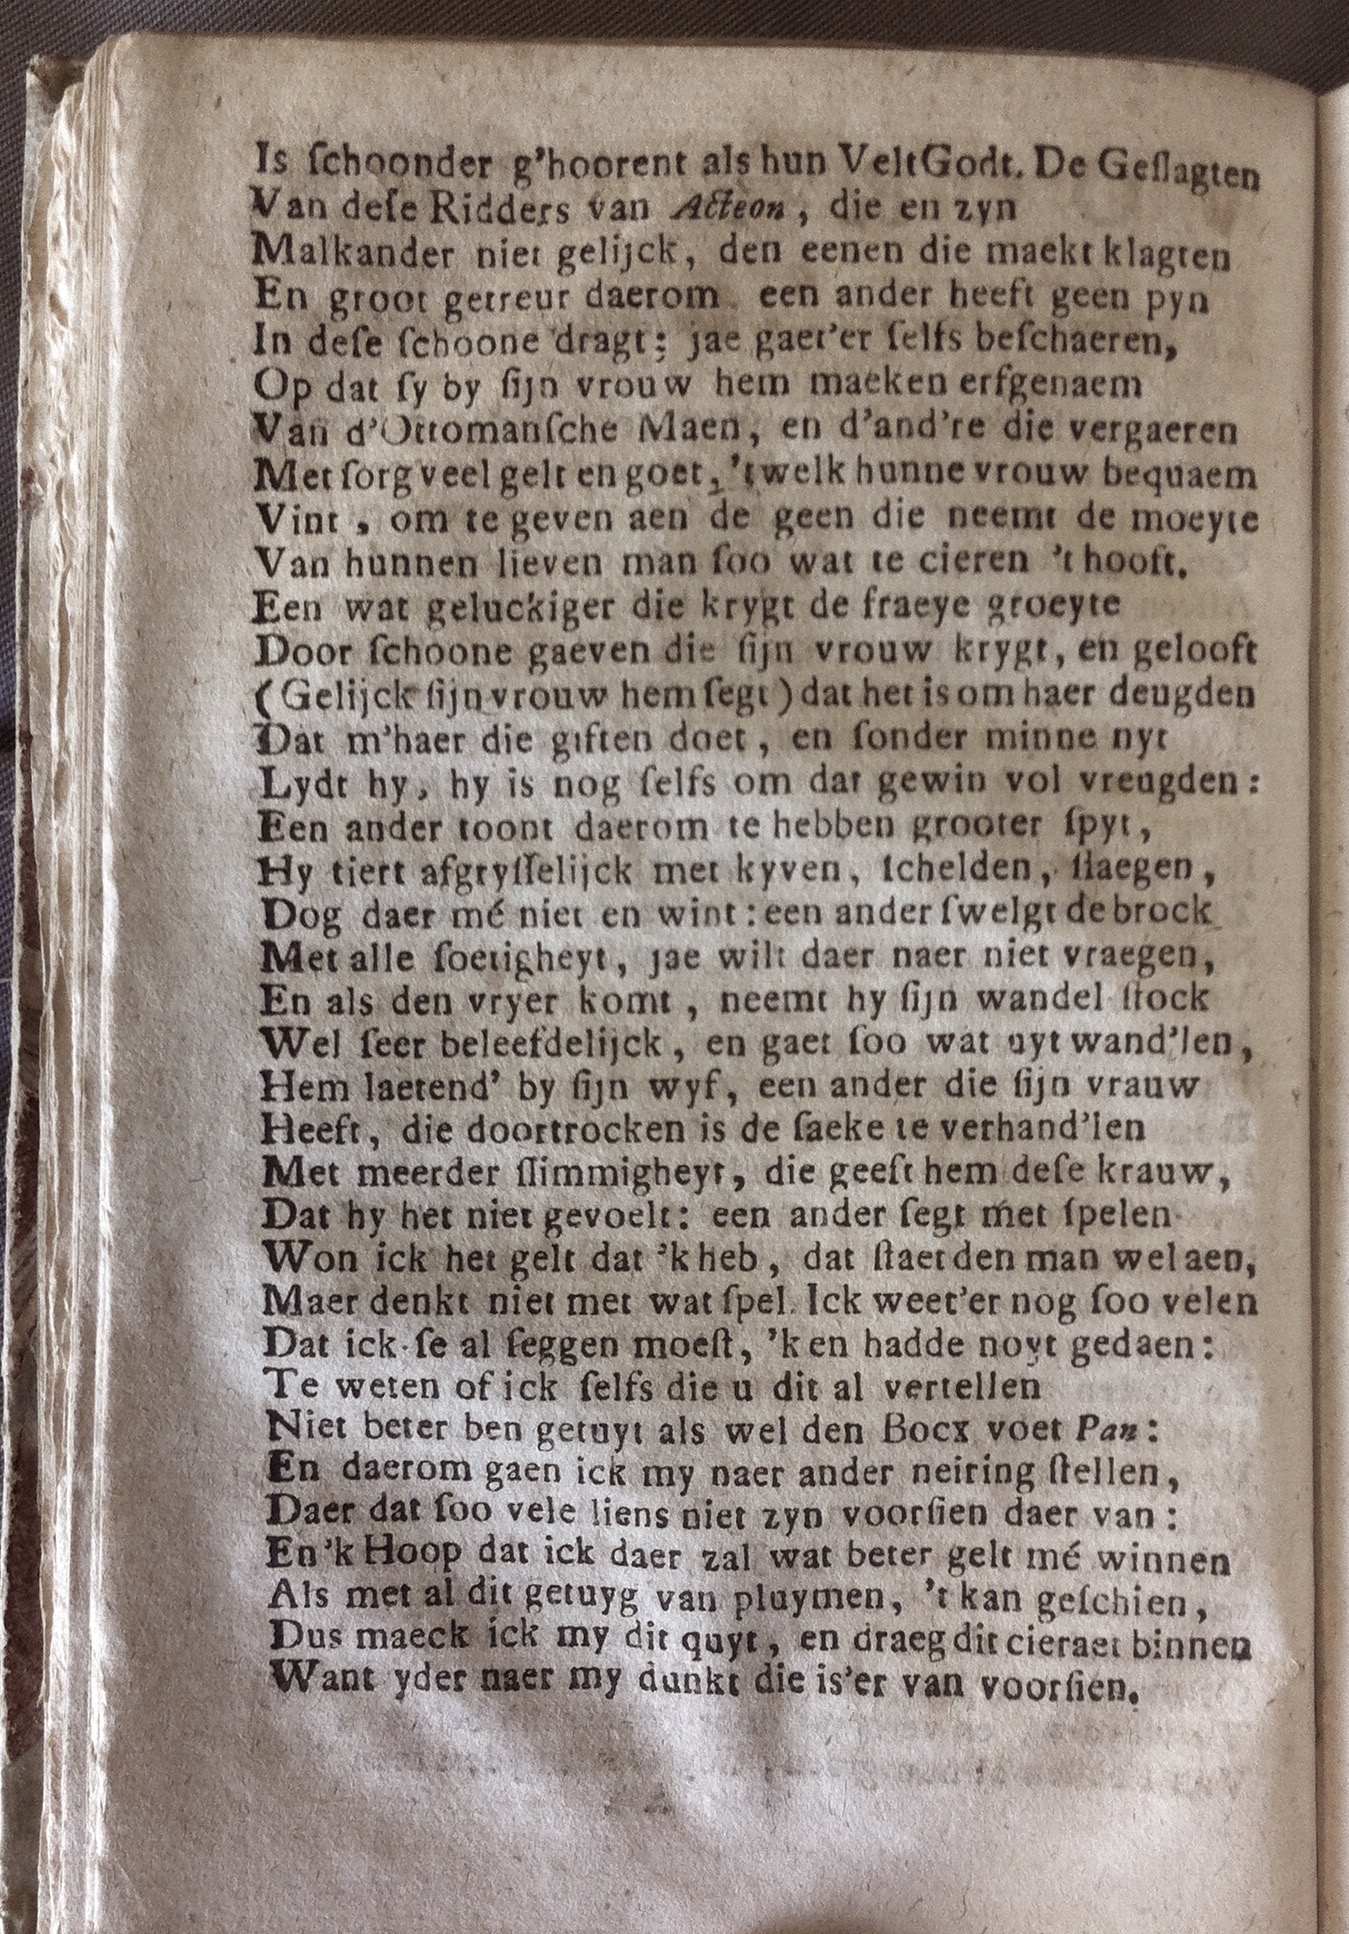 Is ſchoonder g'hoorent als hun VeltGodt. De Geſlagten
Van deſe Ridders van Acteon, die en zyn
Malkander niet gelijck, den eenen die maekt klagten
En groot getreur daerom een ander heeft geen pyn
In deſe ſchoone dragt: jae gaet'er ſelfs beſchaeren,
Op dat ſy by ſijn vrouw hem maeken erfgenaem
Van d'Ottomanſche Maen, en d'and're die vergaeren
Met ſorg veel gelt en goet, 't welk hunne vrouw bequaem
Vint, om te geven aen de geen die neemt de moeyte
Van hunnen lieven man ſoo wat te cieren 't hooft.
Een wat geluckiger die krygt de fraeye groeyte
Door ſchoone gaeven die ſijn vrouw krygt, en gelooft
(Gelijck ſijn vrouw hem ſegt) dat het is om haer deugden
Dat m'haer die giften doet, en ſonder minne nyt
Lydt hy, hy is nog ſelfs om dat gewin vol vreugden:
Een ander toont daerom te hebben grooter ſpyt,
Hy tiert afgryſſelijck met kyven, ſchelden, ſlaegen,
Dog daer mé niet en wint: een ander ſwelgt de brock
Met alle ſoetigheyt, jae wilt daer naer niet vraegen,
En als den vryer komt, neemt hy ſijn wandel ſtock
Wel ſeer beleefdelijck, en gaet ſoo wat uyt wand'len,
Hem laetend' by ſijn wyf, een ander die ſijn vrauw
Heeft, die doortrocken is de ſaeke te verhand'len
Met meerder ſlimmigheyt, die geeft hem deſe krauw,
Dat hy het niet gevoelt: een ander ſegt met ſpelen
Won ick het gelt dat 'k heb, dat ſtaet den man wel aen,
Maer denkt niet met wat ſpel. Ick weet'er nog ſoo velen
Dat ick ſe al ſeggen moeſt, 'k en hadde noyt gedaen:
Te weten of ick ſelfs die u dit al vertellen
Niet beter ben getuyt als wel den Bocx voet Pan:
En daerom gaen ick my naer ander neiring ſtellen,
Daer dat ſoo vele liens niet zyn voorſien daer van:
En 'k Hoop dat ick daer zal wat beter gelt mé winnen
Als met al dit getuyg van pluymen, 't kan geſchien,
Dus maeck ick my dit quyt, en draeg dit cieraet binnen
Want yder naer my dunkt die is'er van voorſien.